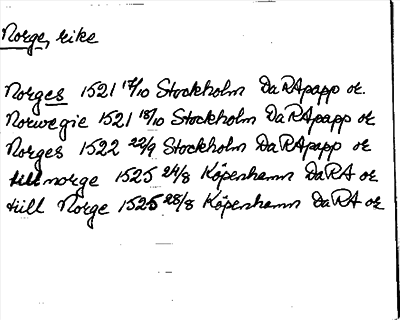 Norge, rike
Norges 1521 17/10 Stockholm DaRApapp or.
Norwegie 1521 18/10 Stockholm DaRApapp or
Norges 1522 22/9 Stockholm DaRApapp or
till norge 1525 24/8 Köpenhamn DaRA or
tiill Norge 1525 28/8 Köpenhamn DaRA or